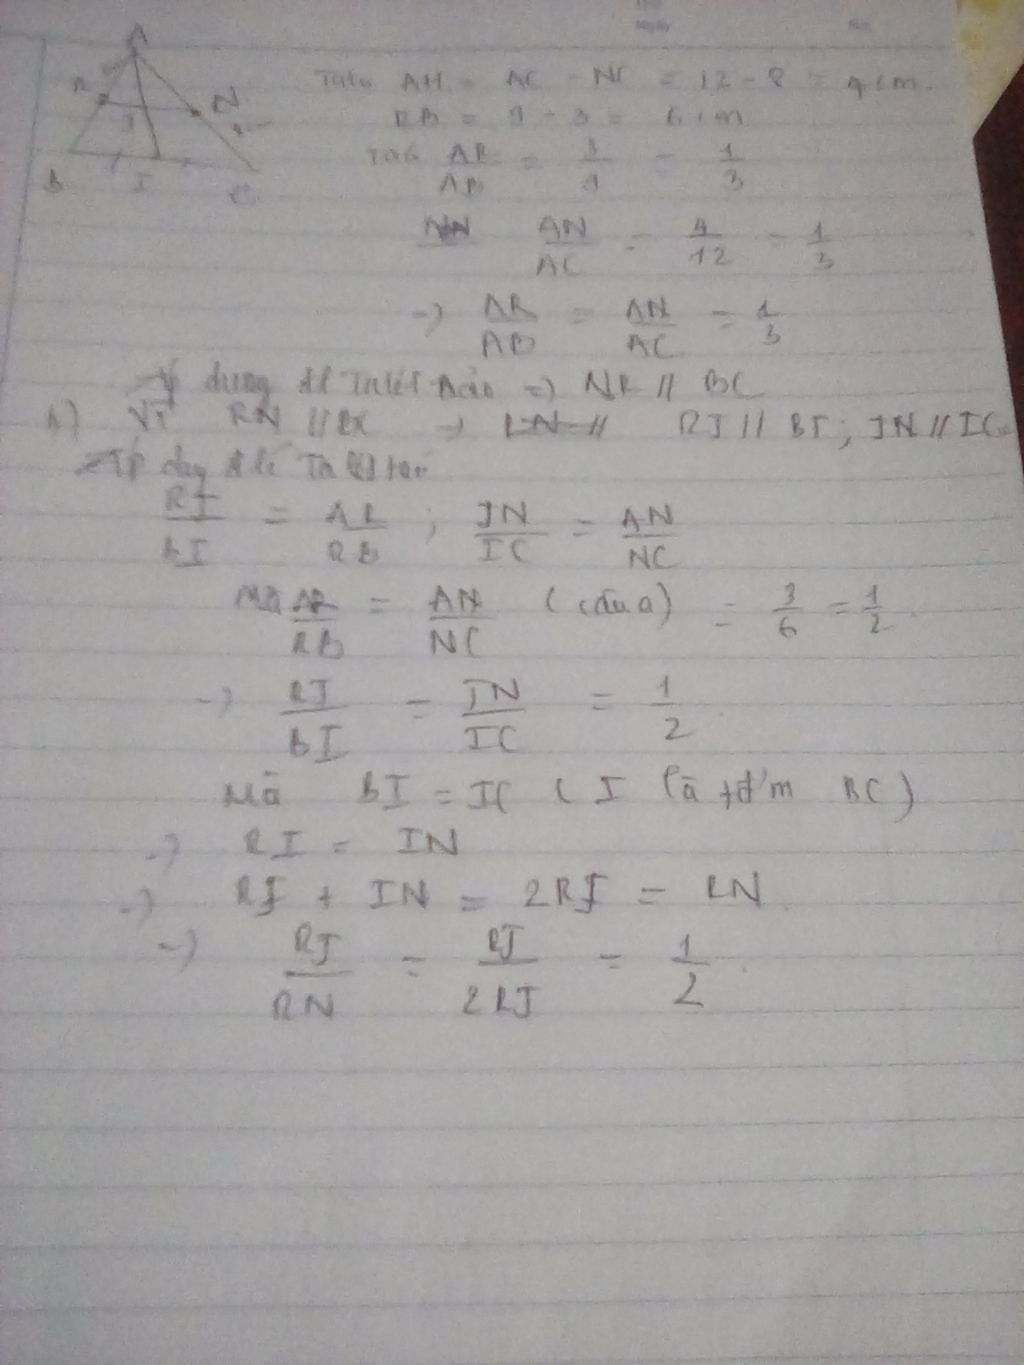 A
R
N
J
B
I
C
Ta có AN = AC - NC = 12 - 8 = 4cm.
RB = 9 - 3 = 6cm
Ta có AR/AB = 3/9 = 1/3
AN/AC = 4/12 = 1/3
=> AR/AB = AN/AC = 1/3
Áp dụng đl Talét đảo => NR // BC
b) Vì RN // BC -> RJ // BI ; JN // IC
Áp dụng đ lí Ta lét
RJ/BI = AR/RB ; JN/IC = AN/NC
Mà AR/RB = AN/NC (câu a) = 3/6 = 1/2.
-> RJ/BI = JN/IC = 1/2
Mà BI = IC ( I là tđ'm BC)
-> RI = IN
-> RJ + IN = 2RJ = RN.
-> RJ/RN = RJ/2RJ = 1/2.